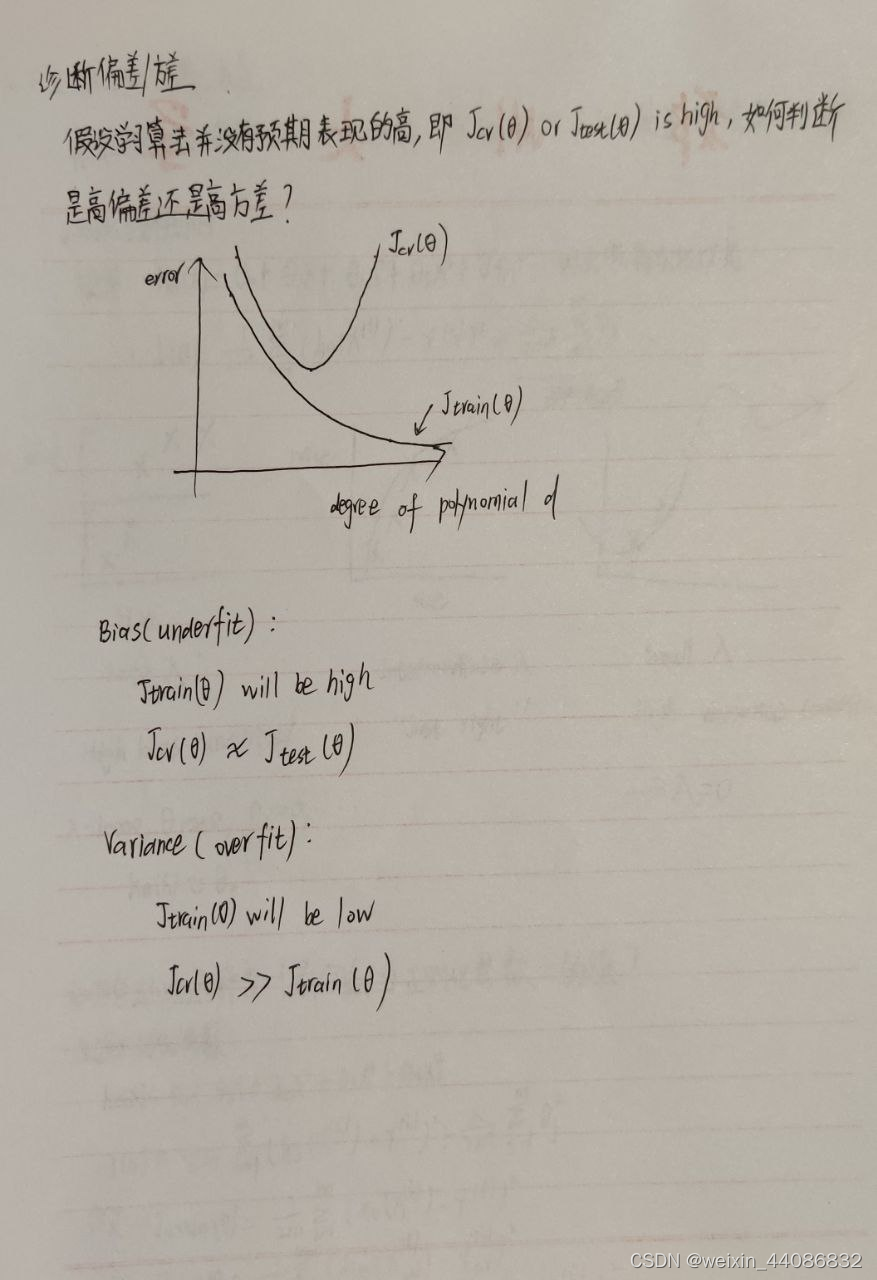 诊断偏差/方差
假设学习算法并没有预期表现的高,即 Jcv(θ) or Jtest(θ) is high, 如何判断
是高偏差还是高方差?
Jcv(θ)
error
Jtrain(θ)
degree of polynomial d
Bias(underfit):
Jtrain(θ) will be high
Jcv(θ) ≈ Jtest(θ)
Variance(overfit):
Jtrain(θ) will be low
Jcv(θ) >> Jtrain(θ)
CSDN @weixin_44086832